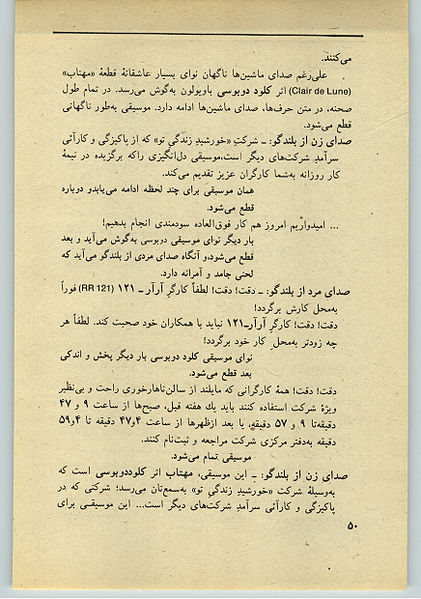 می‌کنند.
علی‌رغم صدای ماشین‌ها ناگهان نوای بسیار عاشقانهٔ قطعهٔ «مهتاب»
(Clair de Lune) اثر کلود دوبوسی باویولون به‌گوش می‌رسد. در تمام طول
صحنه، در متن حرف‌ها، صدای ماشین‌ها ادامه دارد. موسیقی به‌طور ناگهانی
قطع می‌شود.
صدای زن از بلندگو: ـ شرکتِ «خورشیدِ زندگیِ تو» که از پاکیزگی و کارآئی
سرآمدِ شرکت‌های دیگر است،موسیقی دل‌انگیزی راکه برگزیده در نیمهٔ
کار روزانه به‌شما کارگران عزیز تقدیم می‌کند.
همان موسیقی برای چند لحظه ادامه می‌یابدو دوباره
قطع می‌شود.
... امیدواریم امروز هم کار فوق‌العاده سودمندی انجام بدهیم!
بار دیگر نوای موسیقی دوبوسی به‌گوش می‌آید و بعد
قطع می‌شود،و آنگاه صدای مردی از بلندگو می‌آید که
لحنی جامد و آمرانه دارد.
صدای مرد از بلندگو: ـ دقت! دقت! لطفاً کارگرِ آرآر ـ ۱۲۱ (RR 121) فوراً
به‌محل کارش برگردد!
دقت! دقت! کارگرِ آرآر-۱۲۱ نباید با همکاران خود صحبت کند. لطفاً هر
چه زودتر به‌محل کار خود برگردد!
نوای موسیقی کلود دوبوسی بار دیگر پخش و اندکی
بعد قطع می‌شود.
دقت! دقت! همهٔ کارگرانی که مایلند از سالن‌ناهارخوری راحت و بی‌نظیر
ویژهٔ شرکت استفاده کنند باید یك هفته قبل، صبح‌ها از ساعت ۹ و ۴۷
دقیقه‌تا ۹ و ۵۷ دقیقه، یا بعد ازظهرها از ساعت ۴و۴۷ دقیقه تا ۴و۵۹
دقیقه به‌دفتر مرکزی شرکت مراجعه و ثبت‌نام کنند.
موسیقی تمام می‌شود.
صدای زن از بلندگو: ـ این موسیقی، مهتاب اثر کلوددوبوسی است که
به‌وسیلهٔ شرکت «خورشیدِ زندگیِ تو» به‌سمع‌تان می‌رسد؛ شرکتی که در
پاکیزگی و کارآئی سرآمدِ شرکت‌های دیگر است... این موسیقی برای
۵۰